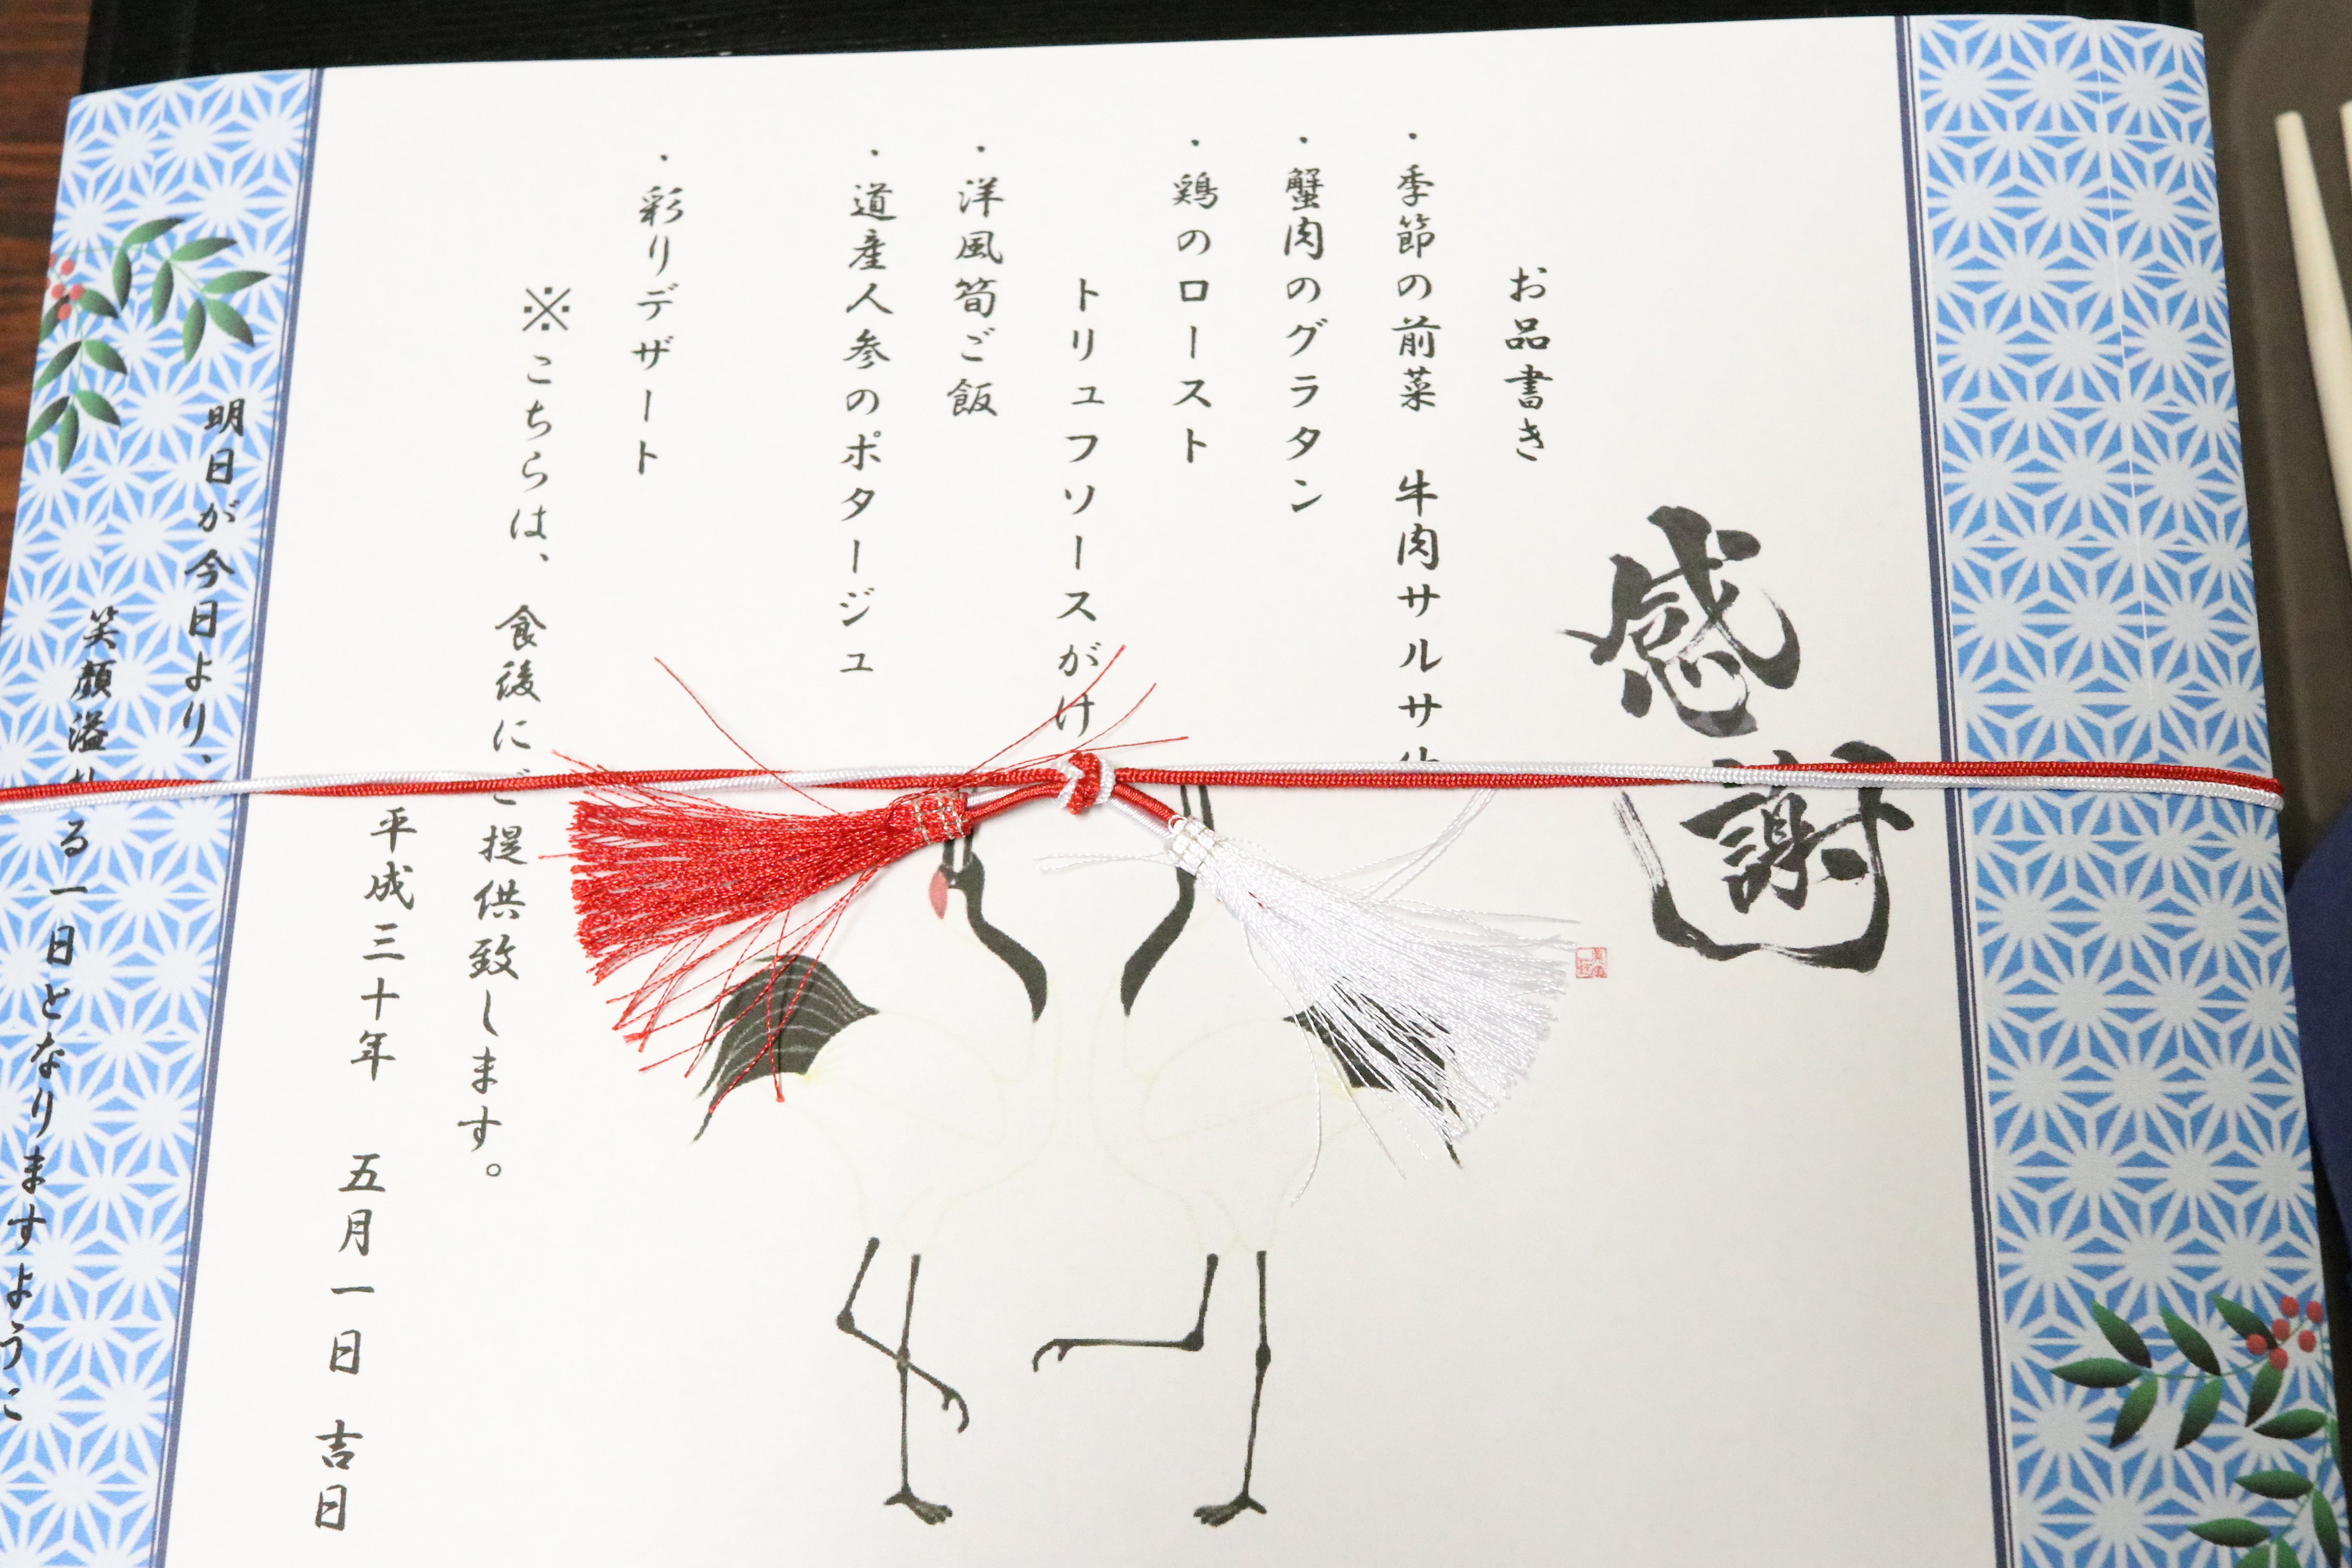 感謝
お品書き
・季節の前菜 牛肉サルルサ
・蟹肉のグラタン
・鶏のロースト
トリュフソースがけ
・洋風筍ご飯
・道産人参のポタージュ
・彩りデザート
※こちらは、食後にご提供致します。
平成三十年 五月一日 吉日
明日が今日より、
笑顔溢れる一日となりますように